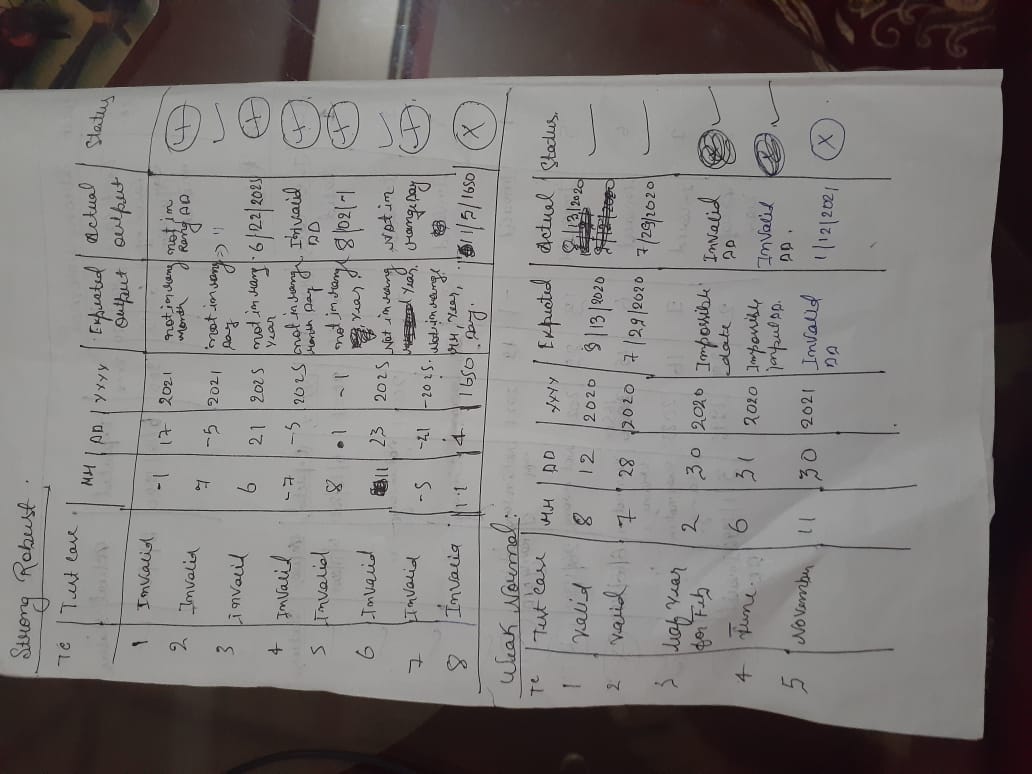 Strong Robust.
TC Test case. MM DD YYYY Expected Output Actual output Status
1 Invalid -1 17 2021 not in rang month not in Rang DD
2 Invalid 7 -5 2021 not in rang Day => "
3 invalid 6 21 2025 not in rang year 6/22/2025
4 Invalid -7 -5 2025 not in rang Month Day Invalid DD
5 Invalid 8 .1 -1 not in rang , year. 8/02/-1
6 Invalid 11 23 2025 Not in rang Year. Not in
7 Invalid -5 -21 -2025. Not in range MM, Year, Day. range Day
8 Invalid 11 4 1650 11/5/1650 X
Weak Normal:
TC Test case MM DD YYYY Expected Actual Status.
1 valid 8 12 2020 8/13/2020 8/13/2020
2 valid 7 28 2020 7/29/2020 7/29/2020
3 leaf Year for Feb 2 30 2020 Impossible date Invalid DD
4 June. 6 31 2020 Impossible input DD. Invalid DD.
5 November 11 30 2021 Invalid DD 1/12/2021 X